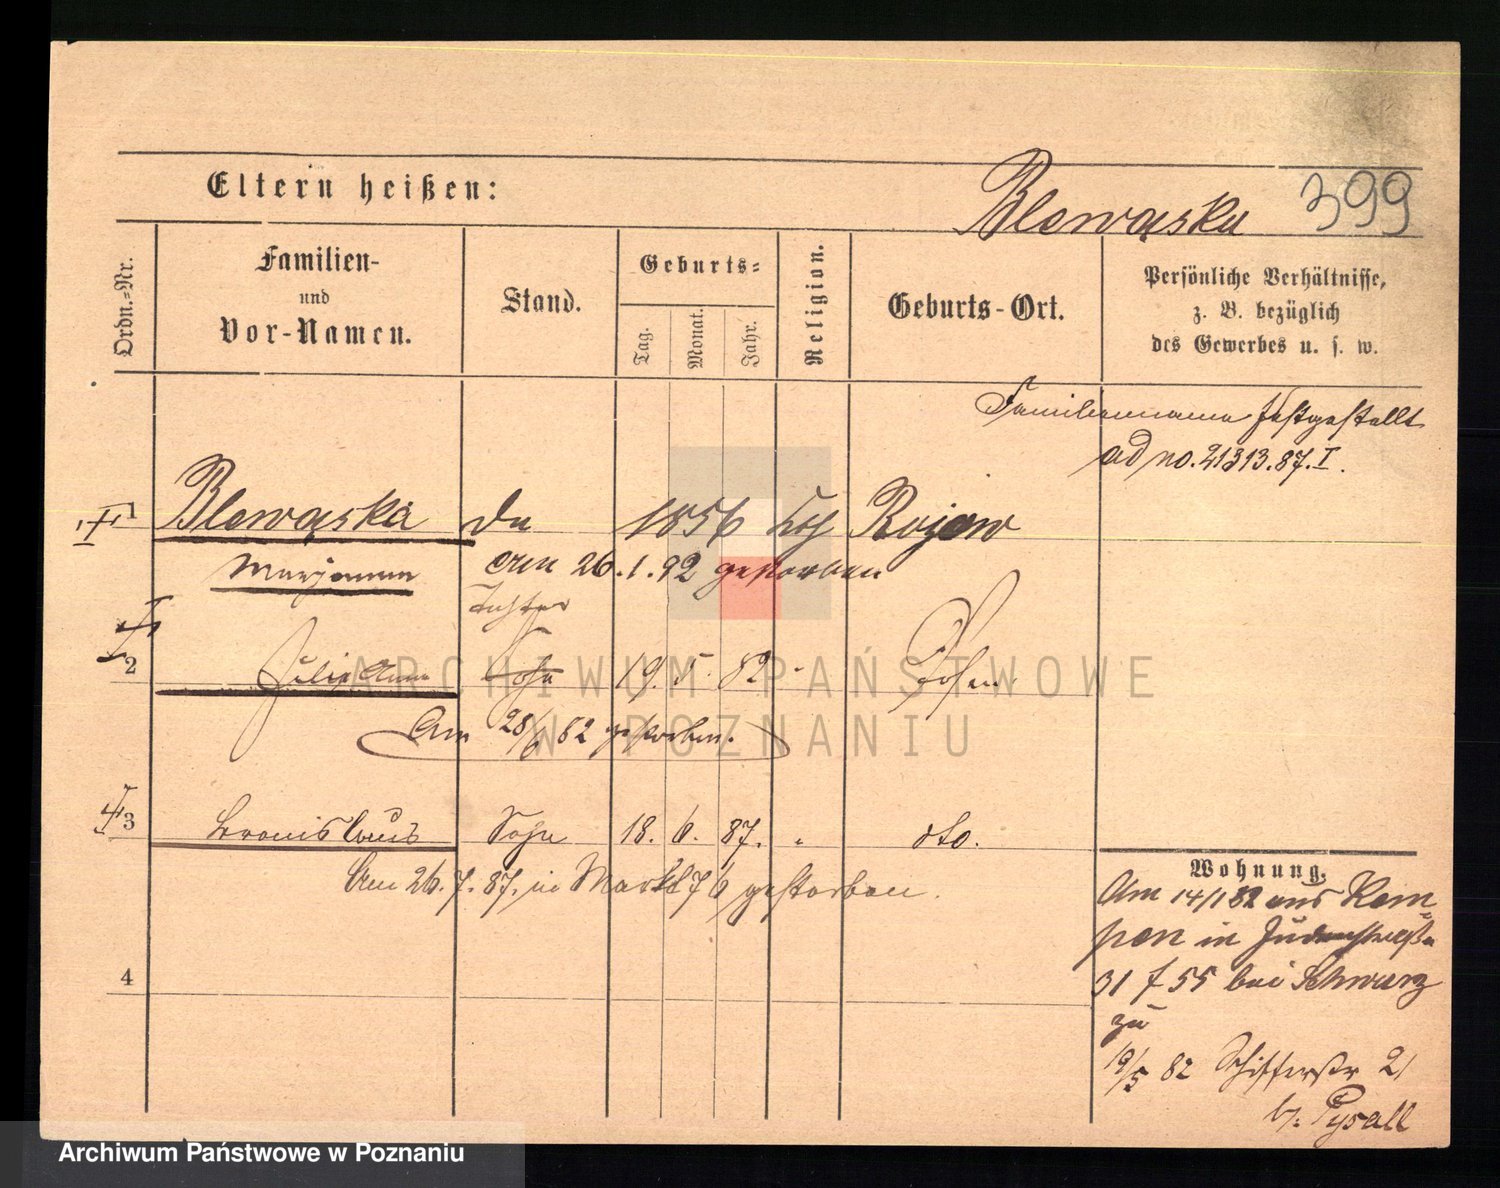 Eltern heißen:
Blewąska 399
Ordn.-Nr.
Familien-
und
Vor-Namen.
Stand.
Geburts-
Tag.
Monat.
Jahr.
Religion.
Geburts-Ort.
Persönliche Verhältnisse,
z. B. bezüglich
des Gewerbes u. s. w.
Familienname festgestellt
ad no. 21313.87.I.
1 Blewąska 1856 kth Rojow
Marjanna am 26.1.92 gestorben
Tochter
2 Sohn 19. 5. 82 - Posen
Am 28/6 82 gestorben.
3 Bronislaus Sohn 18. 6. 87. " dto.
Am 26.7.87. in gestorben.
4
Wohnung.
Am 14/1 82 aus Kem-
pen in Judenstraße
31 f 55 bei Schwarz
zu
19/5 82 Schifferstr 21
b. Pysall
ARCHIWUM PAŃSTWOWE
W POZNANIU
Archiwum Państwowe w Poznaniu